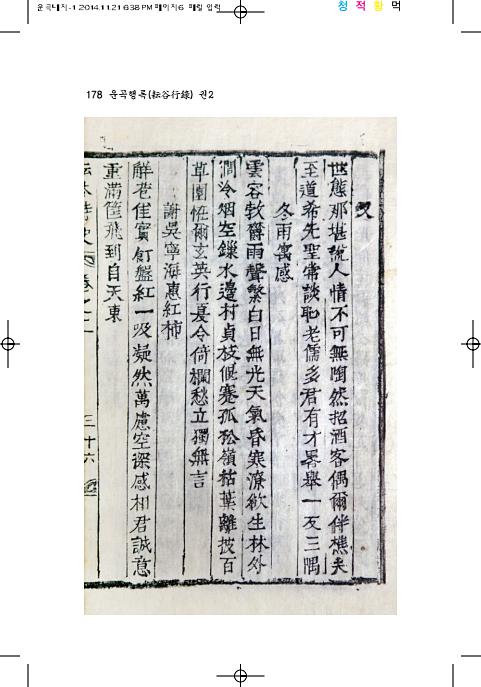 운곡대지-1 2014.11.21 6:38 PM 페이지6 매킬 입력
청 적 황 먹
178 운곡행록(耘谷行錄) 권2
又
世態那堪說人情不可無陶然招酒客偶爾伴樵夫
至道希先聖常談恥老儒多君有才畧擧一反三隅
冬雨寓感
雲容敎罻雨聲繁白日無光天氣昏寒潦欲生林外
澗冷烟空鏁水邊村貞枝偃蹇孤松嶺枯葉離披百
草園恠爾玄英行夏令倚欄愁立獨無言
謝吳寧海惠紅柿
鮮苞佳實飣盤紅一吸凝然萬慮空深感相君誠意
重滿筐飛到自天東
三十六